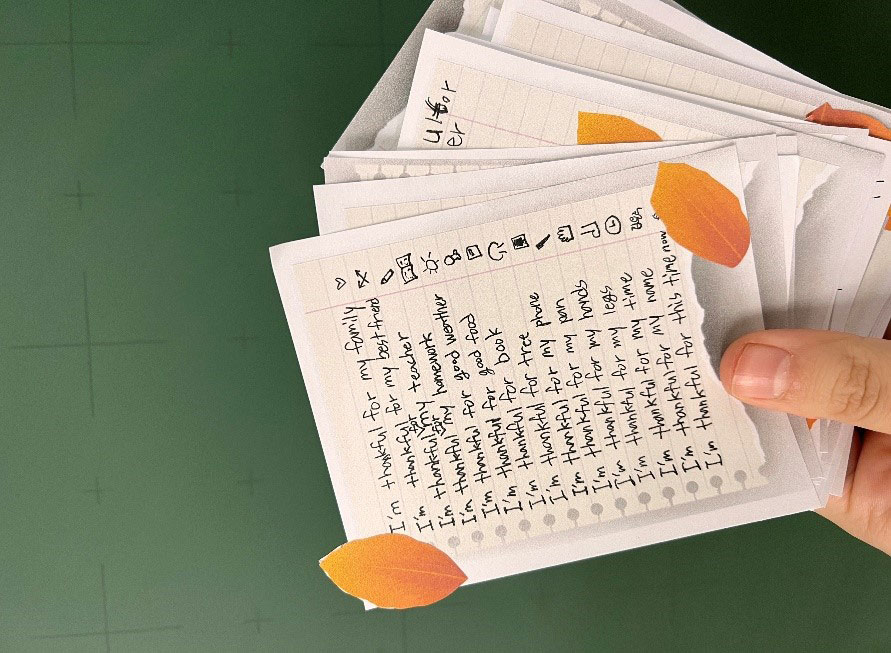 I'm thankful for my family
I'm thankful for my best friend
I'm thankful for teacher
I'm thankful for my homework
I'm thankful for my good weather
I'm thankful for good food
I'm thankful for book
I'm thankful for tree
I'm thankful for my phone
I'm thankful for my pen
I'm thankful for my hands
I'm thankful for my legs
I'm thankful for my time
I'm thankful for my name
I'm thankful for this time now
ul for
er